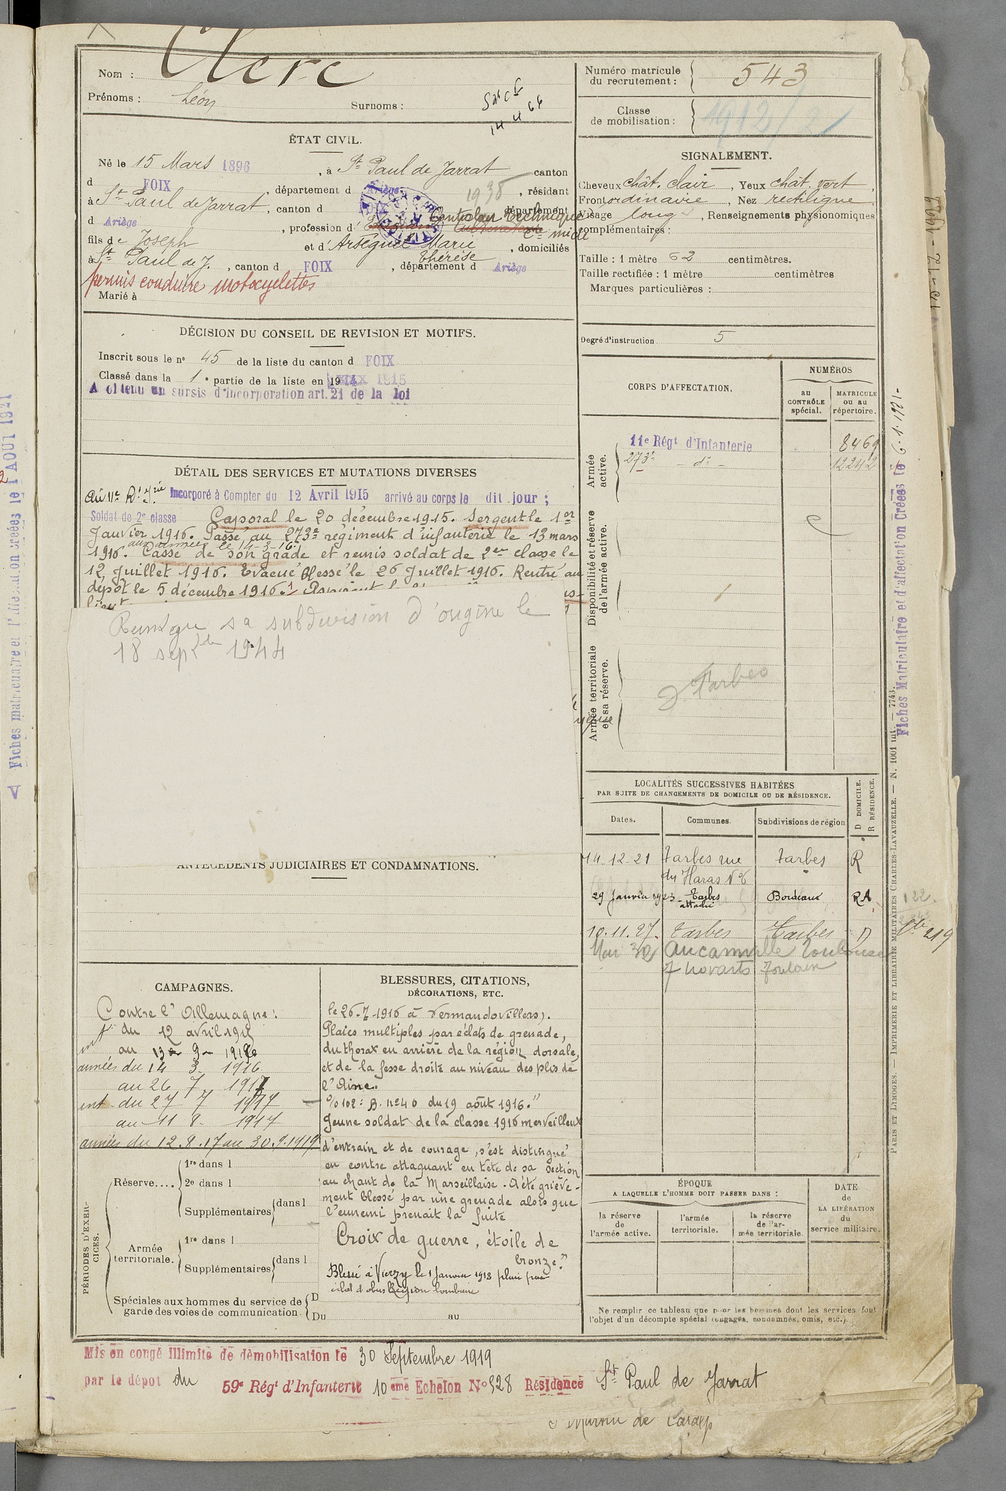 Nom : Clerc
Prénoms : Léon Surnoms :
ÉTAT CIVIL.
Né le 15 Mars 1896, à St Paul de Jarrat canton
d FOIX, département d Ariège, résidant
à St Paul de Jarrat, canton d
d Ariège, profession d
fils de Joseph
et d'Arseguel Marie Thérèse, domiciliés
à St Paul de J., canton d FOIX, département d Ariège
permis conduire motocyclettes
Marié à
DÉCISION DU CONSEIL DE REVISION ET MOTIFS.
Inscrit sous le no 45 de la liste du canton d FOIX
Classé dans la 1e partie de la liste en 1915
A obtenu un sursis d'incorporation art. 21 de la loi
DÉTAIL DES SERVICES ET MUTATIONS DIVERSES
Incorporé à Compter du 12 Avril 1915 arrivé au corps le dit jour ;
Soldat de 2e classe Caporal le 20 décembre 1915. Sergent le 1er
Janvier 1916. Passé au 273e régiment d'infanterie le 13 mars
1916. aux armées le 14-3-16. Cassé de son grade et remis soldat de 2e classe le
12 Juillet 1916. Evacué blessé le 26 Juillet 1916. Rentré au
dépôt le 5 décembre 1916.
sa subdivision d'origine le
18 sept 1944
ANTÉCÉDENTS JUDICIAIRES ET CONDAMNATIONS.
CAMPAGNES.
Contre l'Allemagne :
int du 12 avril 1915
au 13 - 3 - 1916
armées du 14 3 1916
au 26 7 1917
int. du 27 7 1917
au 11 8 1917
armées du 12.8.17 au 30.9.1919
PÉRIODES D'EXERCICES.
Réserve.... 1re dans l
2e dans l
Supplémentaires dans l
Armée territoriale. 1re dans l
Supplémentaires dans l
Spéciales aux hommes du service de garde des voies de communication D
Du au
BLESSURES, CITATIONS,
DÉCORATIONS, ETC.
le 26-7-1916 à Vermandovillers).
Plaies multiples par éclats de grenade,
du thorax en arrière de la région dorsale,
et de la fesse droite au niveau des plis de
l'aine.
B. no 40 du 19 août 1916."
Jeune soldat de la classe 1916 merveilleux
d'entrain et de courage, s'est distingué
en contre attaquant en tête de sa section
au chant de la Marseillaise. A été griève-
ment blessé par une grenade alors que
l'ennemi prenait la fuite
Croix de guerre, étoile de
bronze."
Blessé à Verzy le 1 Janvier 1918 plaie par
éclat d'obus Région lombaire
Numéro matricule du recrutement : 543
Classe de mobilisation : 1912/2
SIGNALEMENT.
Cheveux chât. clair, Yeux chât. vert,
Front ordinaire, Nez rectiligne
Visage long, Renseignements physionomiques
complémentaires :
Taille : 1 mètre 62 centimètres.
Taille rectifiée : 1 mètre centimètres
Marques particulières :
Degré d'instruction. 5
CORPS D'AFFECTATION.
NUMÉROS
AU CONTRÔLE spécial.
MATRICULE ou au répertoire.
Armée active.
11e Régt d'Infanterie 8469
273e - d° - 12242
Disponibilité et réserve de l'armée active.
Armée territoriale et sa réserve.
Tarbes
LOCALITÉS SUCCESSIVES HABITÉES
PAR SUITE DE CHANGEMENTS DE DOMICILE OU DE RÉSIDENCE.
Dates. Communes. Subdivisions de région D DOMICILE. R RÉSIDENCE.
14.12.21 Tarbes rue du Haras No 8 Tarbes R
29 Janvier 1923 Tarbes Bordeaux RA
10.11.27. Tarbes Tarbes D
Aucamville Toulouse
ÉPOQUE
A LAQUELLE L'HOMME DOIT PASSER DANS :
la réserve de l'armée active.
l'armée territoriale.
la réserve de l'armée territoriale.
DATE de LA LIBÉRATION du service militaire.
Ne remplir ce tableau que pour les hommes dont les services font
l'objet d'un décompte spécial (engagés, condamnés, omis, etc.).
Mis en congé illimité de démobilisation le 30 Septembre 1919
par le dépôt du 59e Régt d'Infanterie 10eme Echelon No 528 Résidence St Paul de Jarrat
Fiches Matriculaire et d'affectation Créées le 6.1.1921
PARIS ET LIMOGES. — IMPRIMERIE ET LIBRAIRIE MILITAIRES CHARLES-LAVAUZELLE.
219